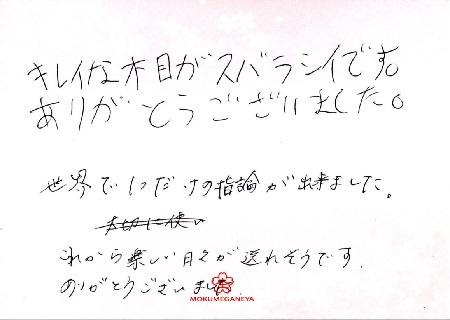 キレイな木目がスバラシイです。
ありがとうございました。
世界で1つだけの指論が出来ました。
大切に使い
これから楽しい日々が送れそうです.
ありがとうございました
MOKUMEGANEYA